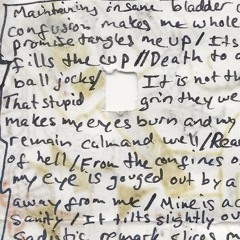 Maintaining insane bladder c
confusion makes me whole
promise tangles me up / Its
fills the cup // Death to a
ball jocks / It is not th
That stupid grin they we
makes my eyes burn and my
remain calm and well / Rea
of hell / From the confines o
my eye is gouged out by a
away from me / Mine is ac
Sanity / It tilts slightly ou
Sadistic remark slices m